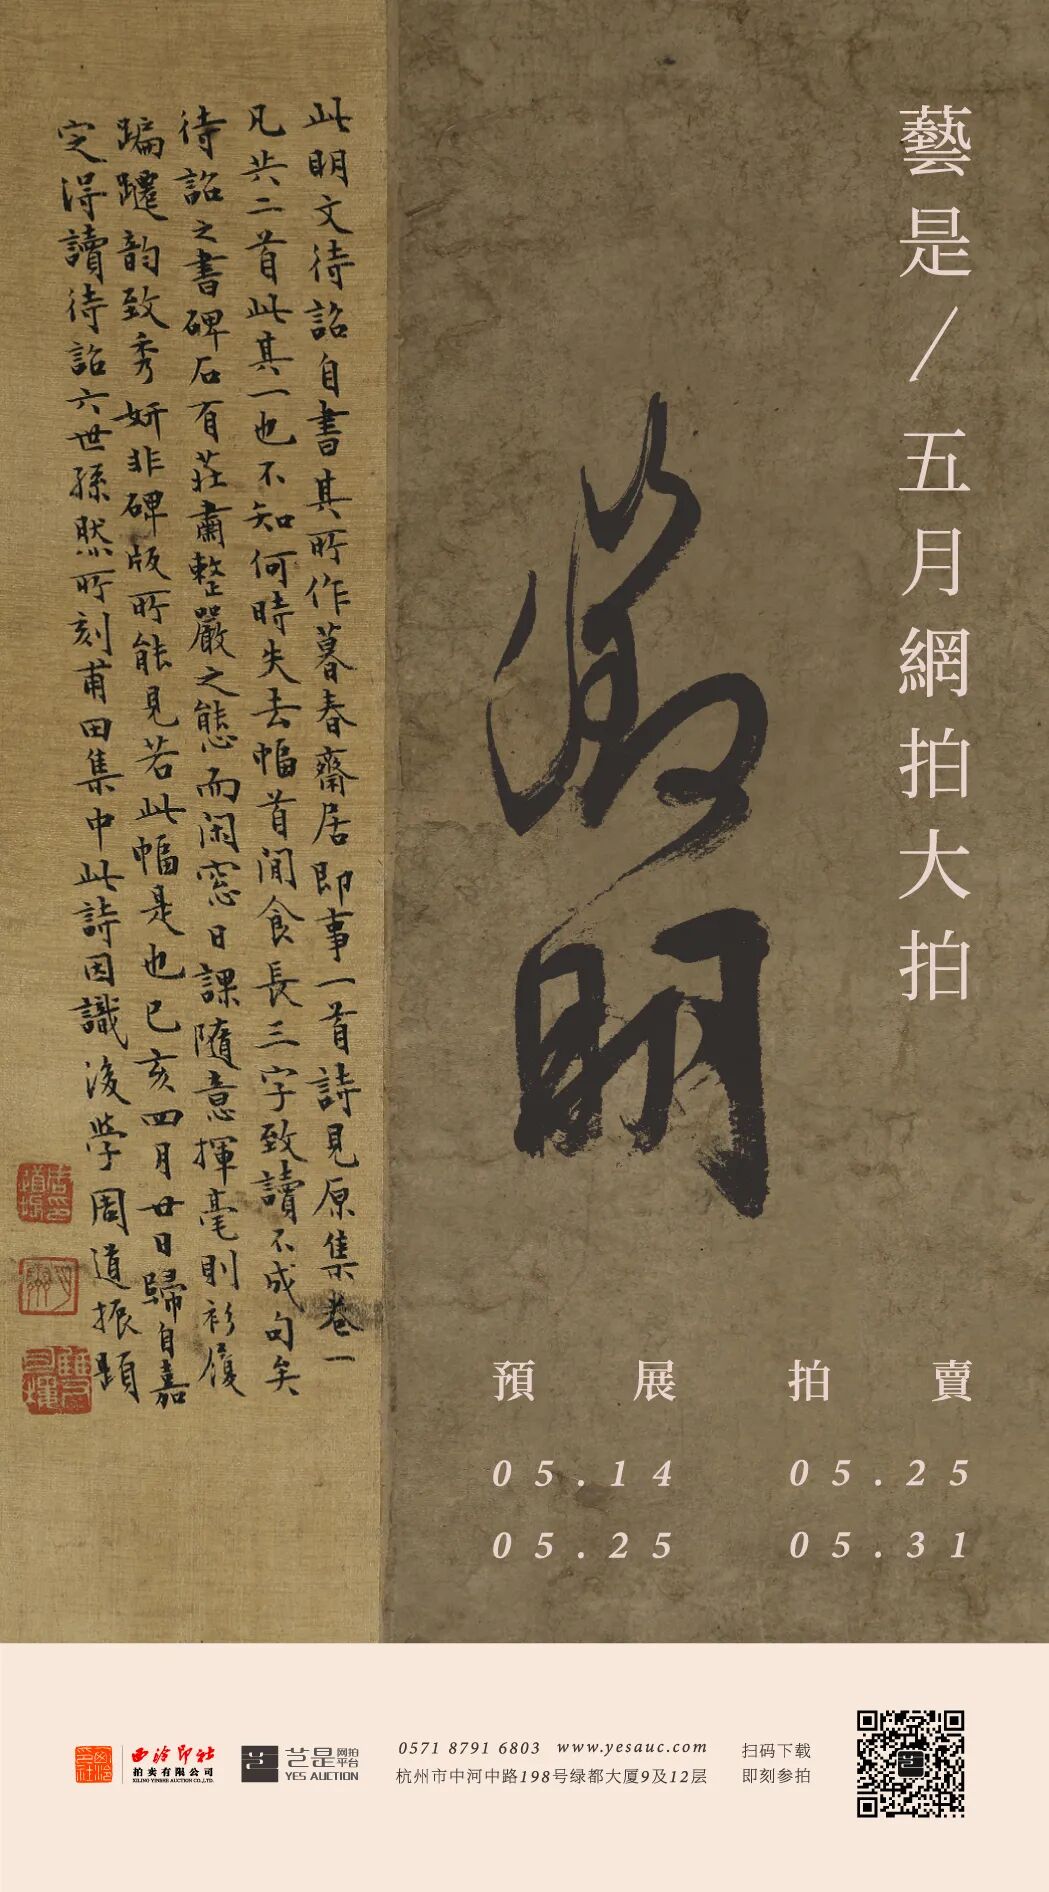 藝是/五月網拍大拍
徵明
此明文待詔自書其所作暮春齋居即事一首詩見原集卷一
凡共二首此其一也不知何時失去幅首閒食長三字致讀不成句矣
待詔之書碑石有莊肅整嚴之態而闲窓日課隨意揮毫則衫履
蹁蹮韵致秀妍非碑版所能見若此幅是也己亥四月廿日歸自嘉
定得讀待詔六世孫然所刻莆田集中此詩因識後學周道振題
預展 拍賣
05.14 05.25
05.25 05.31
西泠印社
拍卖有限公司
XILING YINSHE AUCTION CO.,LTD.
艺是网拍平台
YES AUCTION
0571 8791 6803 www.yesauc.com
杭州市中河中路198号绿都大厦9及12层
扫码下载
即刻参拍